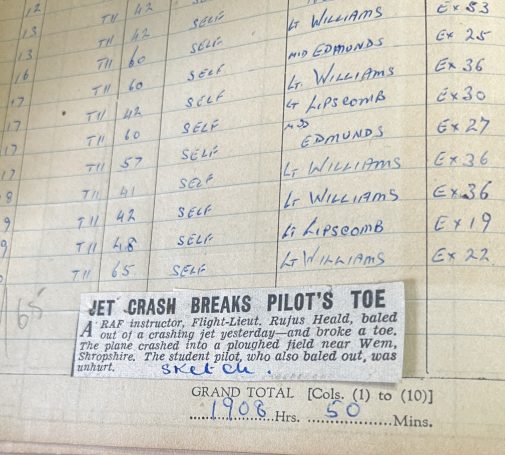 12 T11 42 SELF Lt WILLIAMS Ex 53
13 T11 42 SELF MID EDMUNDS Ex 25
13 T11 60 SELF Lt WILLIAMS Ex 36
16 T11 60 SELF Lt LIPSCOMB Ex 30
17 T11 42 SELF MID EDMUNDS Ex 27
17 T11 60 SELF Lt WILLIAMS Ex 36
17 T11 57 SELF Lt WILLIAMS Ex 36
8 T11 41 SELF Lt LIPSCOMB Ex 19
9 T11 42 SELF Lt WILLIAMS Ex 22
9 T11 48 SELF
T11 65 SELF
65
JET CRASH BREAKS PILOT'S TOE
A RAF instructor, Flight-Lieut. Rufus Heald, baled
out of a crashing jet yesterday—and broke a toe.
The plane crashed into a ploughed field near Wem,
Shropshire. The student pilot, who also baled out, was
unhurt. Sketch.
GRAND TOTAL [Cols. (1) to (10)]
1908 Hrs. 50 Mins.